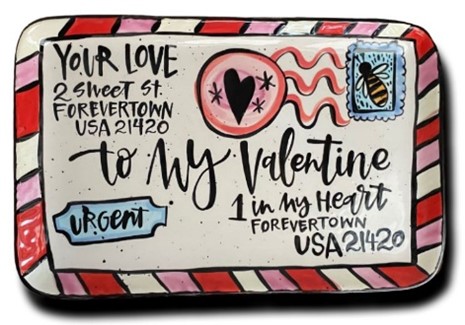 YOUR LOVE
2 SWEET ST.
FOREVERTOWN
USA 21420
to My Valentine
URGENT
1 in My Heart
FOREVERTOWN
USA 21420